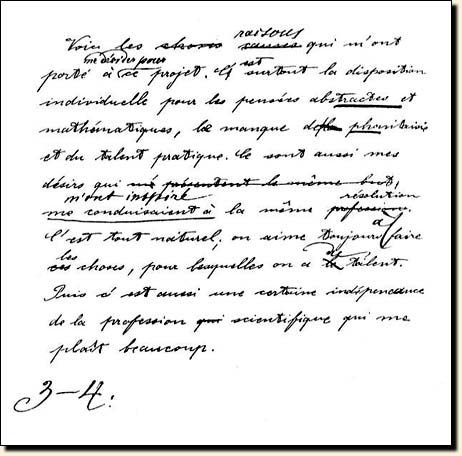 raisons
Voici les choses causes qui m'ont
me décider pour est
porté à ce projet. C' surtout la disposition
individuelle pour les pensées abstractes et
mathématiques, le manque de la phantaisie
et du talent pratique. Ce sont aussi mes
désirs qui me présentent le même but,
m'ont inspiré résolution
me conduisaient à la même profession.
à
C'est tout naturel, on aime toujours faire
les
ces choses, pour lesquelles on a le talent.
Puis c'est aussi une certaine indépencance
de la profession qui scientifique qui me
plaît beaucoup.
3–4.